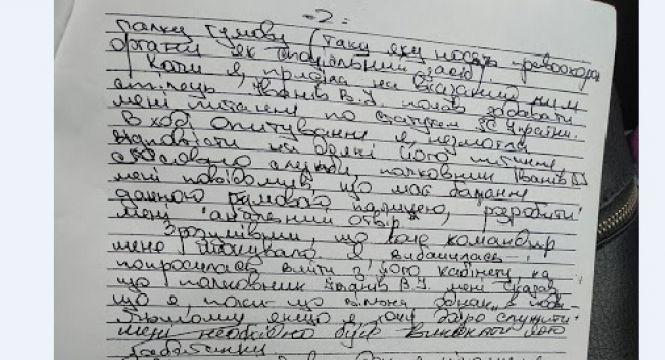 - 2 -
палку гумову (таку яку носять правоохор
органи як спеціальний засіб.
Коли я, прибула на вказаний ним
стілець, Іванів В.І. почав задавати
мені питання по статутам ЗС України.
В ході опитування я, незмогла
відповісти на деякі його питання
стосовно служби, полковник Іванів В
мені повідомив, що має бажання
даною гумовою палицею, розробити
мені "анальний отвір".
Зрозумівши, що вже командир
мене я вибачилась і
попросилась вийти з його кабінету, на
що полковник Іванів В.І. мені сказав
що я, поки що в
якщо я хочу служити
мені необхідно буде його
забаганки.